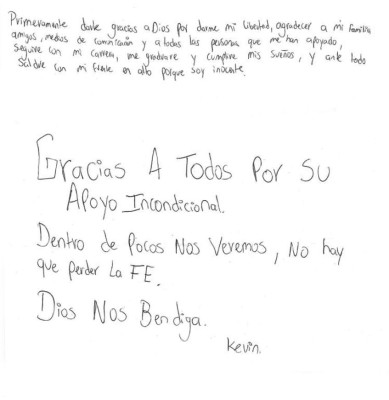 Primeramente darle gracias a Dios por darme mi libertad, agradecer a mi familia
amigos, medios de comunicación y a todas las personas que me han apoyado,
Seguire con mi carrera, me graduare y cumplire mis sueños, y ante todo
Saldre con mi frente en alto porque soy inocente.
Gracias A Todos Por SU
Apoyo Incondicional.
Dentro de Pocos Nos Veremos, No hay
que perder La FE.
Dios Nos Bendiga.
Kevin.